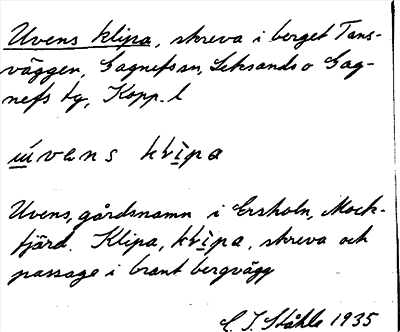 Uvens klipa, skreva i berget Tans-
väggen, Gagnefs sn, Leksands o Gag-
nefs tg, Kopp. l
úvens klìpa
Uvens, gårdsnamn i Ersholn, Mock-
fjärd. Klipa, klìpa, skreva och
passage i brant bergvägg
C. I. Ståhle 1935